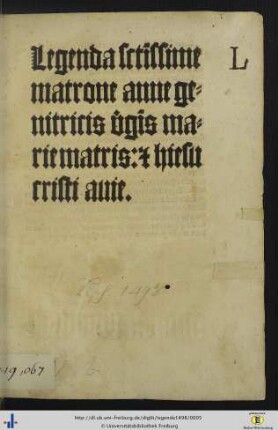 Legenda sctissime
matrone anne ge-
nitricis v̄gīs ma-
rie matris: ⁊ hiesu
cristi auie.
L
19,067
http://dl.ub.uni-freiburg.de/diglit/legenda1498/0005
© Universitätsbibliothek Freiburg